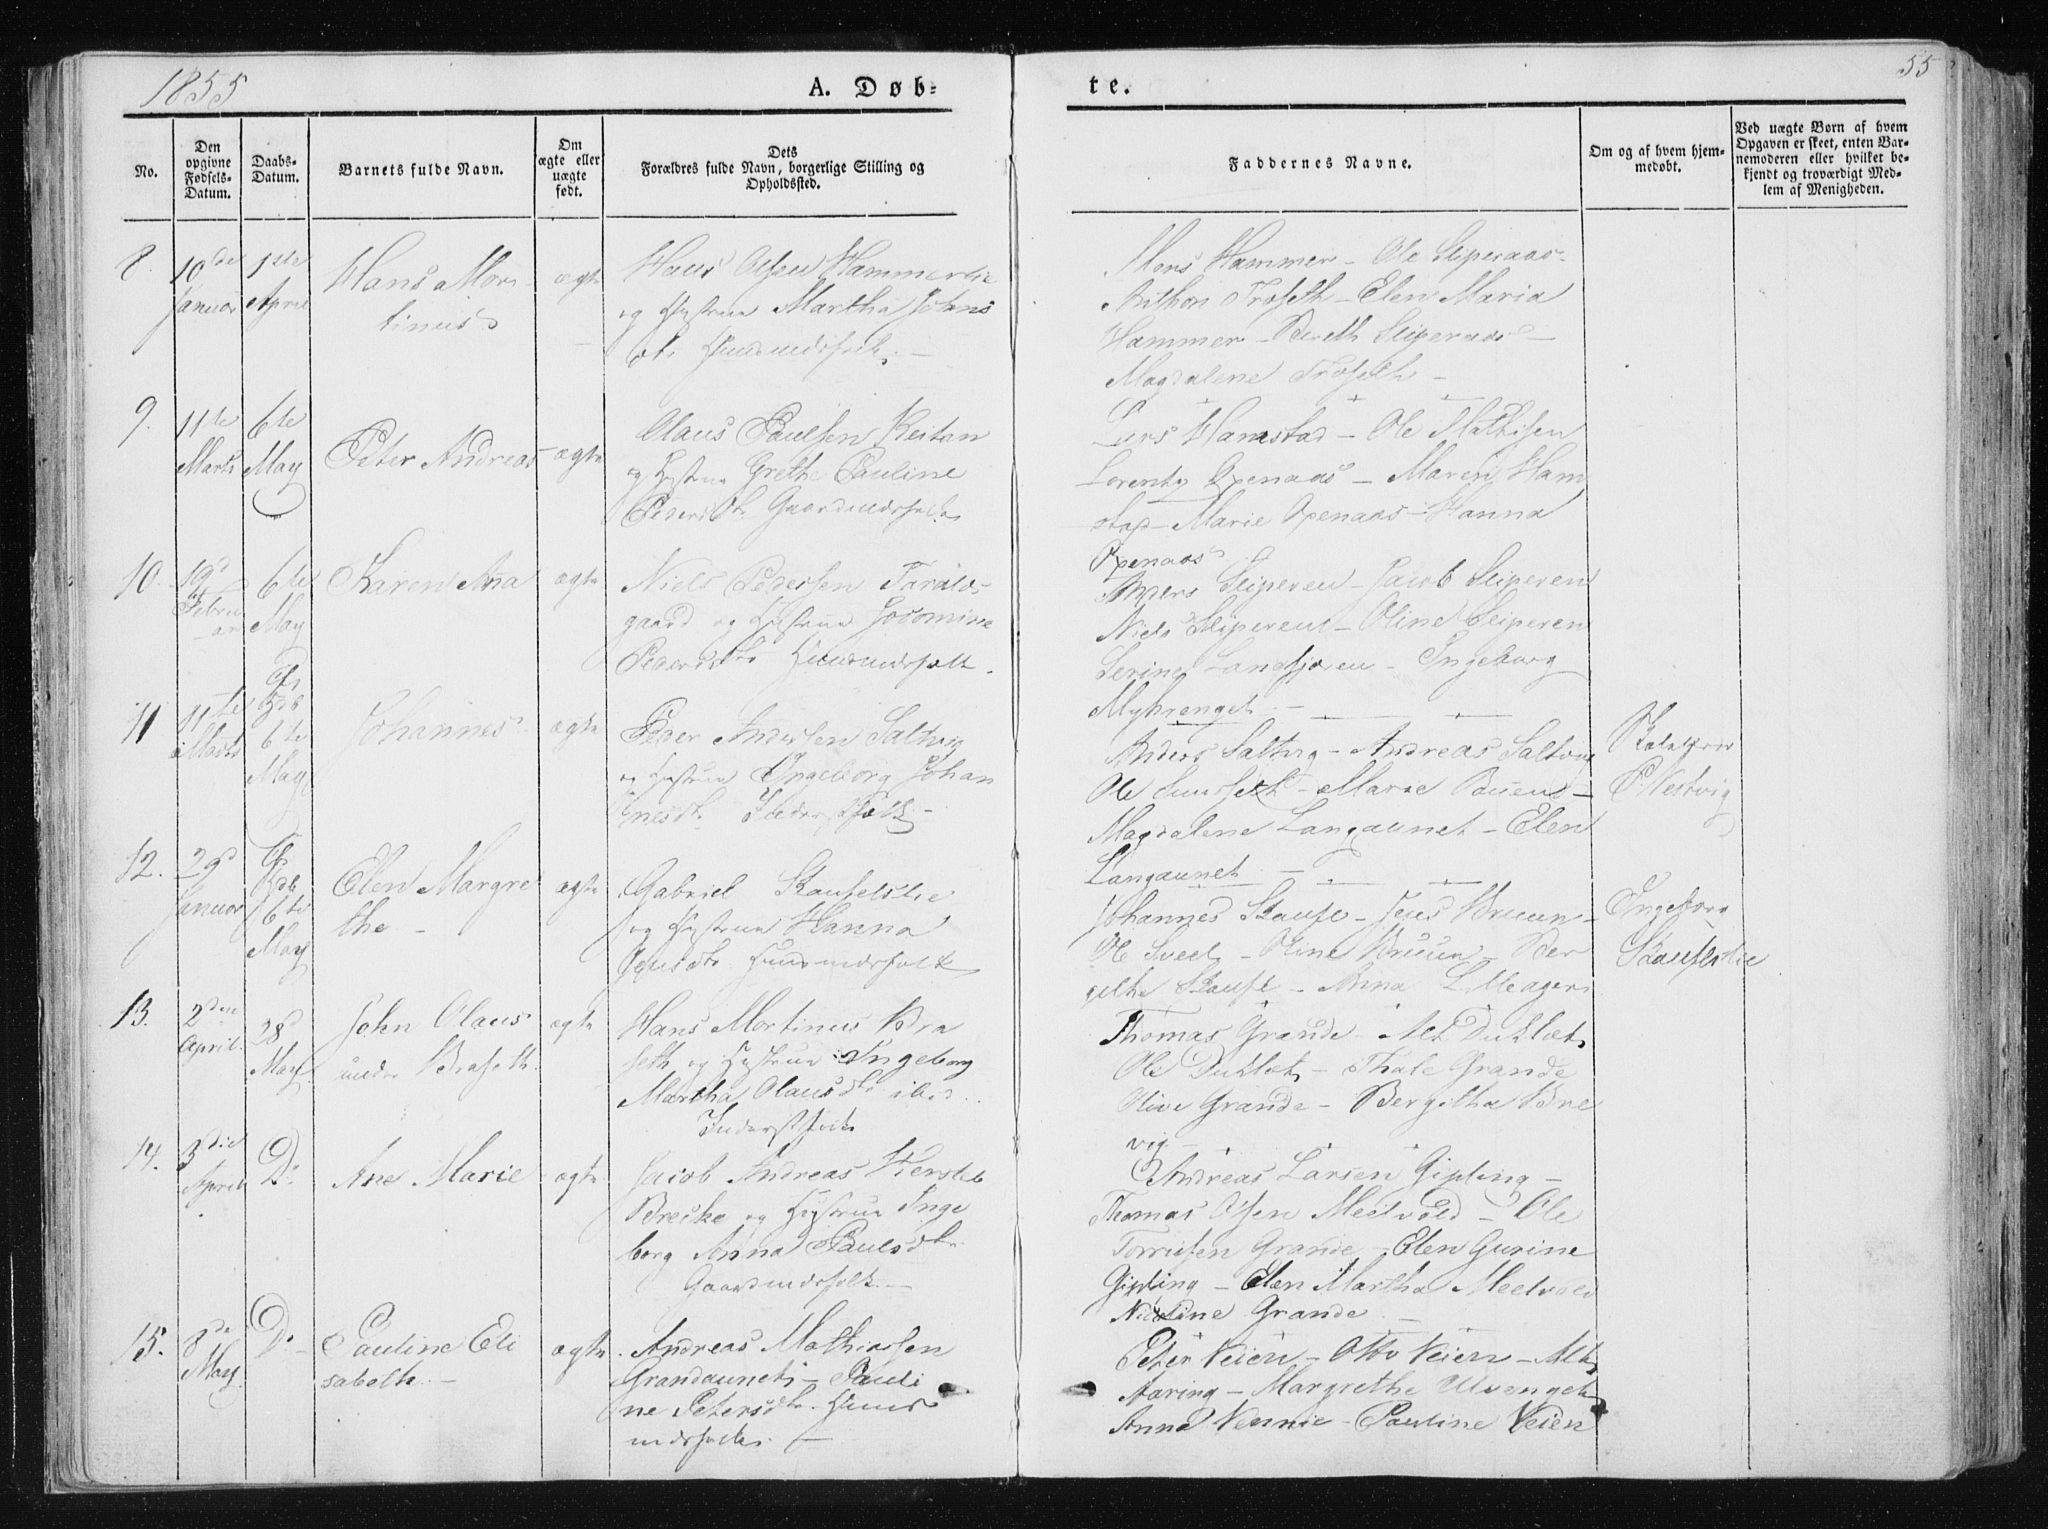 1855
A. Døb=
te.
55
No.
Den
opgivne
Fødsels-
Datum.
Daabs-
Datum.
Barnets fulde Navn.
Om
ægte eller
uægte
født.
Dets
Forældres fulde Navn, borgerlige Stilling og
Opholdssted.
Faddernes Navne.
Om og af hvem hjem-
medøbt.
Ved uægte Børn af hvem
Opgaven er skeet, enten Bar-
nemoderen eller hvilket be-
kjendt og troværdigt Med-
lem af Menigheden.
8.
10de
Januar
1ste
April
Hans Mor
tinus
ægte
Hans Olsen Hammerlie
og Hustrue Martha Johns
dtr Huusmdsfolk. -
Mons Hammer - Ole Sliperaas
Trøseth - Elen Maria
Hammer - Bereth Sliperaas -
Magdalene Trøseth -
9.
11te
Marts
6te
May
Peter Andreas
ægte
Olaus Paulsen Reitan
og Hustrue Grethe Pauline
Pedersdtr Gaardmdsfolk
Lars Hamstad - Ole Mathisen
Lorents Oxenaas - Maren Ham
stad - Marie Oxenaas - Hanna
Oxenaas
10.
19d
Febru
ar
6te
May
Karen Ana
ægte
Niels Pedersen Tarals-
gaard og Hustrue
Pedersdtr Huusmdsfolk.
Anders Sliperen - Jacob Sliperen
Niels Sliperen - Oline Sliperen
Serine - Ingeborg
Myhrenget -
11
11te
Marts
6te
May
Johannes
ægte
Peder Andersen Saltvig
og Hustrue Ingeborg Johan
nesdtr Inderstfolk -
Anders Saltvig - Andreas Saltvig
Ole - Marie Buen -
Magdalene Langaunet - Elen
Langaunet -
P Westvig
12.
29
Januar
6te
May
Elen Margre
the -
ægte
Gabriel Skaufelslie
og Hustrue Hanna
Jensdtr. Huusmdsfolk
Johannes Skaufl - Jens Bruun -
Ole Sveet - Oline Bruun - Ber
githe Skaufl - Anna Lilleager
Ingeborg
Skaufelslie
13.
2den
April.
28
May
John Olaus
under Braseth.
ægte
Hans Martinus Bra
seth og Hustrue Ingeborg
Martha Olausdtr ibid.
Inderstfolk
Thomas Grande - Alt Duklæt
Ole Duklæt - Thale Grande
Olive Grande - Bergitha Bre
vig -
14.
3die
April
Do
Ane Marie
ægte
Jacob Andreas Hersleb
Breike og Hustrue Inge
borg Anna Paulsdtr.
Gaardmdsfolk. -
Andreas Larsen Gipling -
Thomas Olsen Meelvold - Ole
Torrisen Grande - Elen Gurine
Gipling - Elen Martha Meelvold
Nicoline Grande -
15.
8de
May
Do
Pauline Eli
sabeth. -
ægte
Andreas Mathiasen
Grandaunet - Pauli
ne Petersdtr. Huus
mdsfolk. -
Peter Veien - Otto Veien - Alt
Aaring - Margrethe Ulvenget
Anna Vennie - Pauline Veien